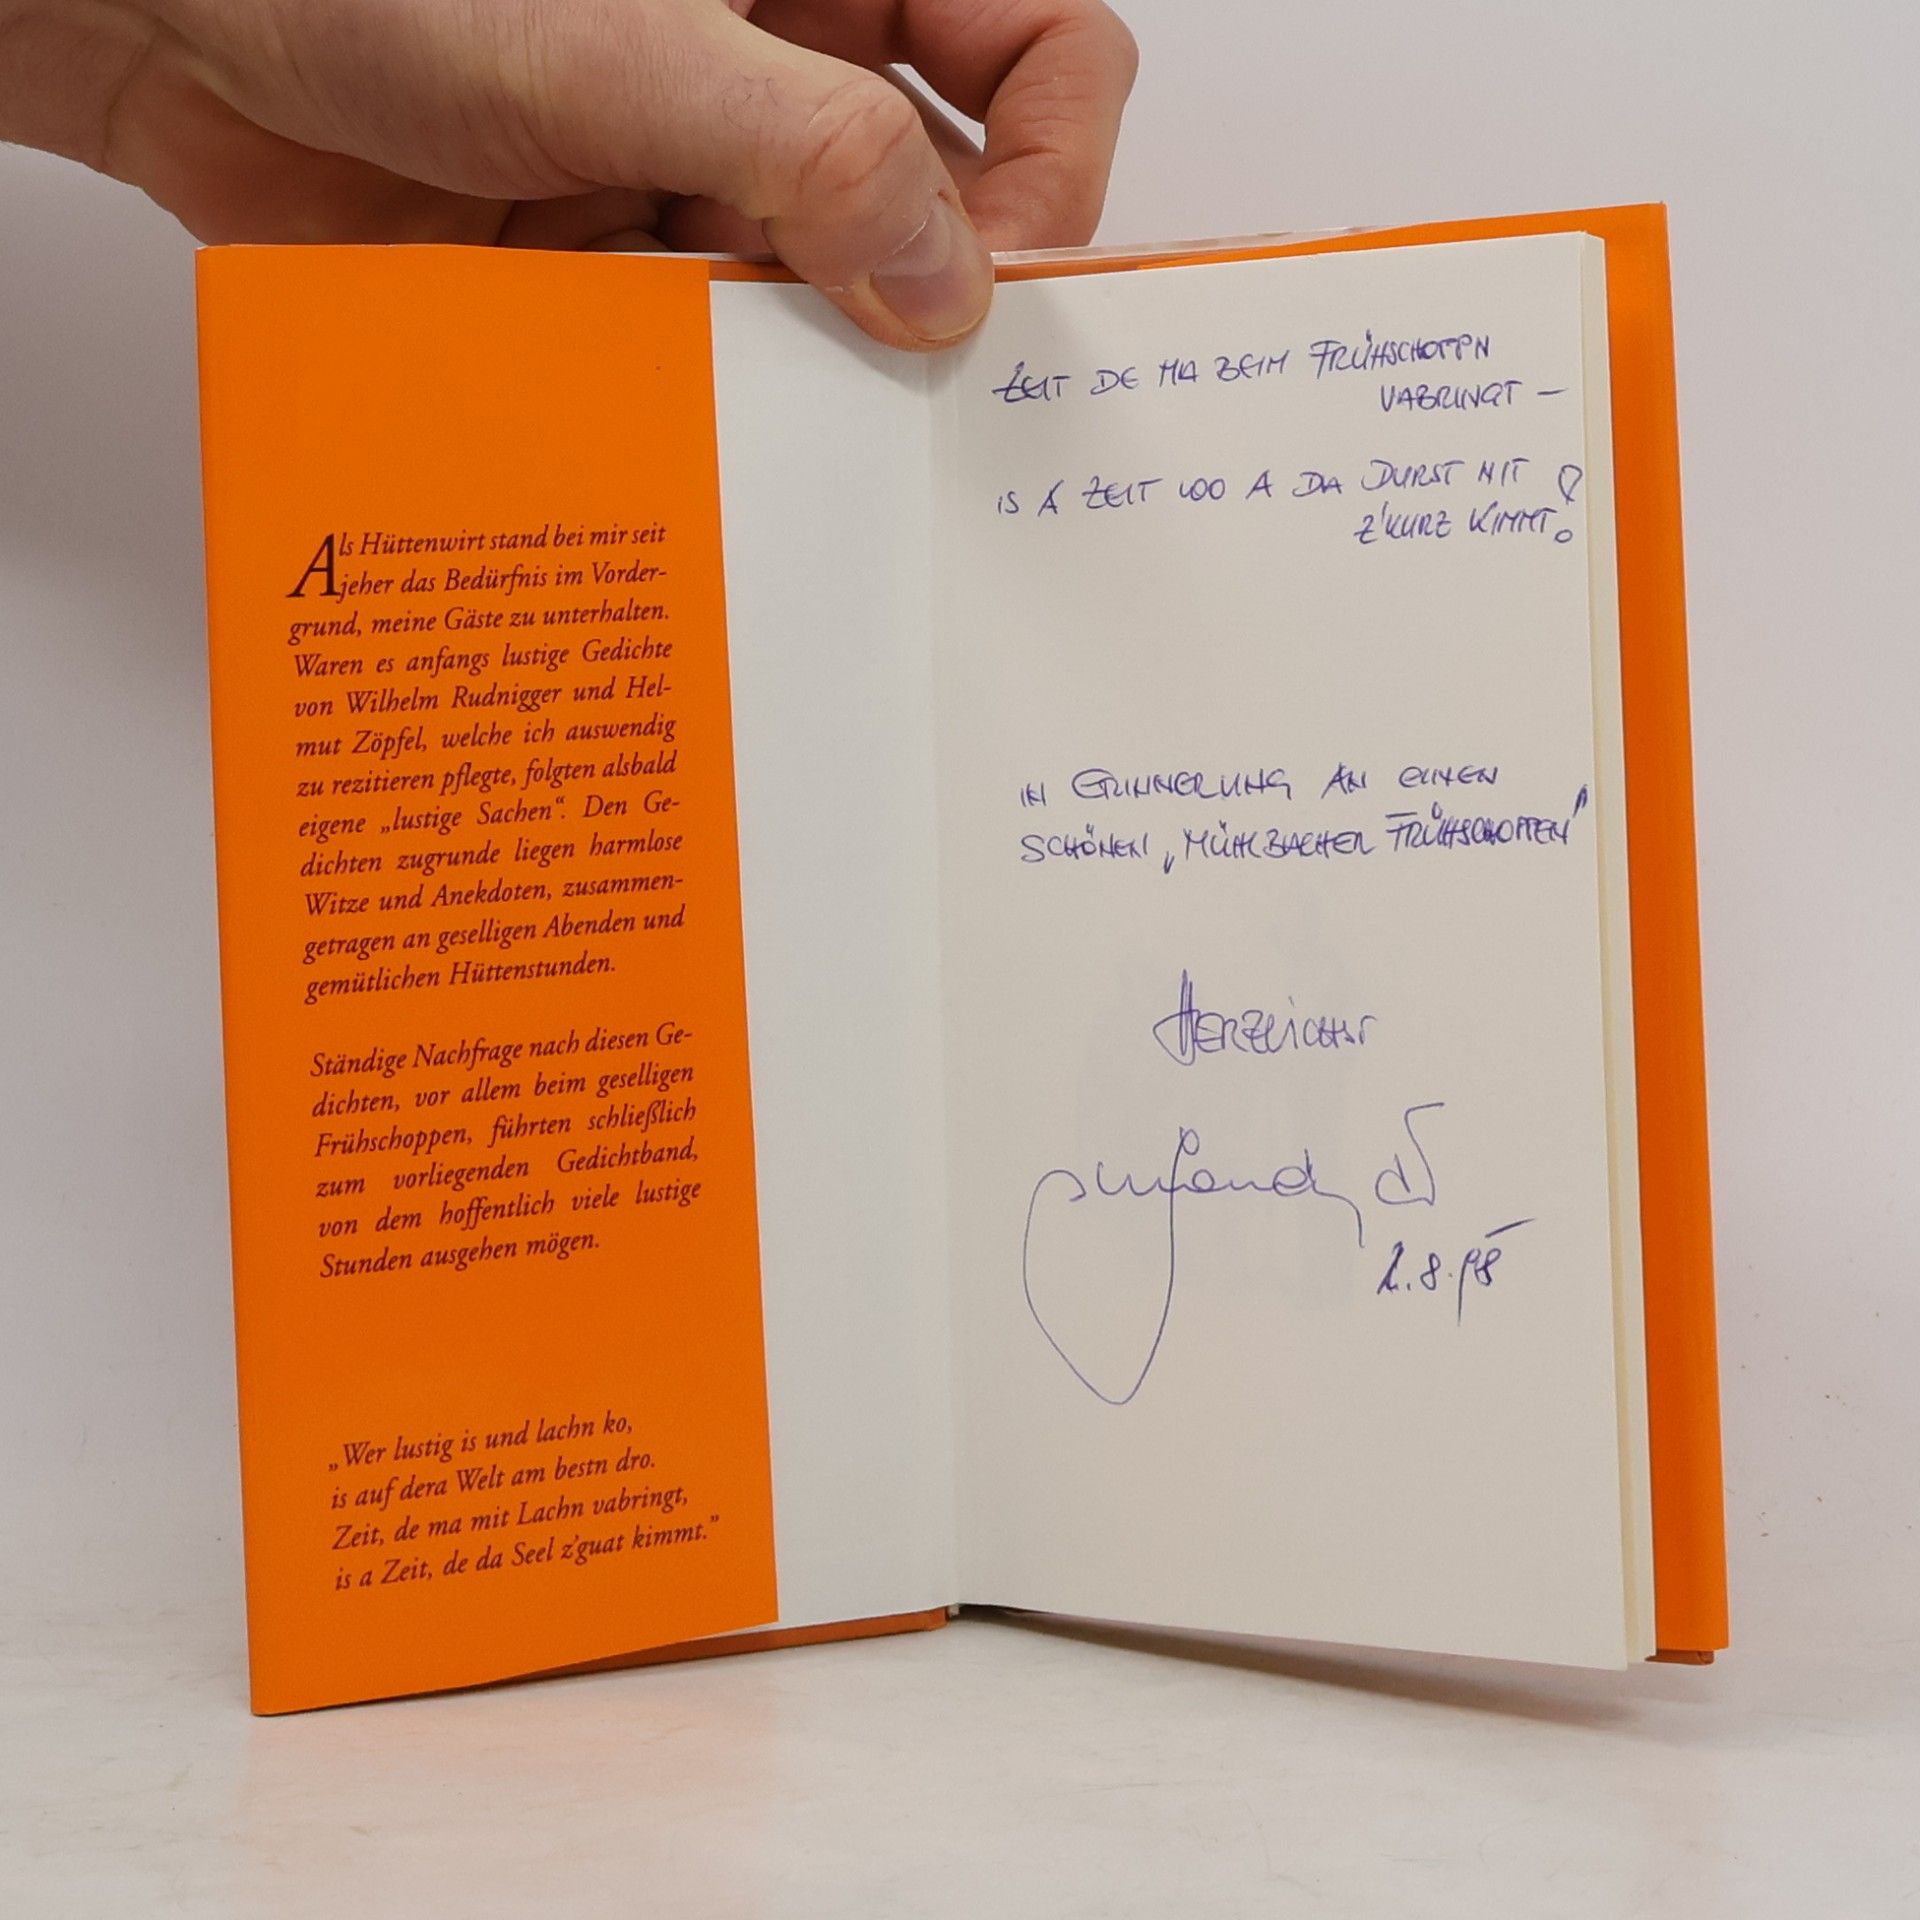 Als Hüttenwirt stand bei mir seit
jeher das Bedürfnis im Vorder-
grund, meine Gäste zu unterhalten.
Waren es anfangs lustige Gedichte
von Wilhelm Rudnigger und Hel-
mut Zöpfel, welche ich auswendig
zu rezitieren pflegte, folgten alsbald
eigene „lustige Sachen“. Den Ge-
dichten zugrunde liegen harmlose
Witze und Anekdoten, zusammen-
getragen an geselligen Abenden und
gemütlichen Hüttenstunden.
Ständige Nachfrage nach diesen Ge-
dichten, vor allem beim geselligen
Frühschoppen, führten schließlich
zum vorliegenden Gedichtband,
von dem hoffentlich viele lustige
Stunden ausgehen mögen.
„Wer lustig is und lachn ko,
is auf dera Welt am bestn dro.
Zeit, de ma mit Lachn vabringt,
is a Zeit, de da Seel z'guat kimmt.”
ZEIT DE MA BEIM FRÜHSCHOPPN
VABRINGT –
IS A ZEIT WO A DA DURST NIT
Z'KURZ KIMMT!
IN ERINNERUNG AN EINEN
SCHÖNEN „MÜHLBACHER FRÜHSCHOPPEN"
HERZLICHST
2.8.98